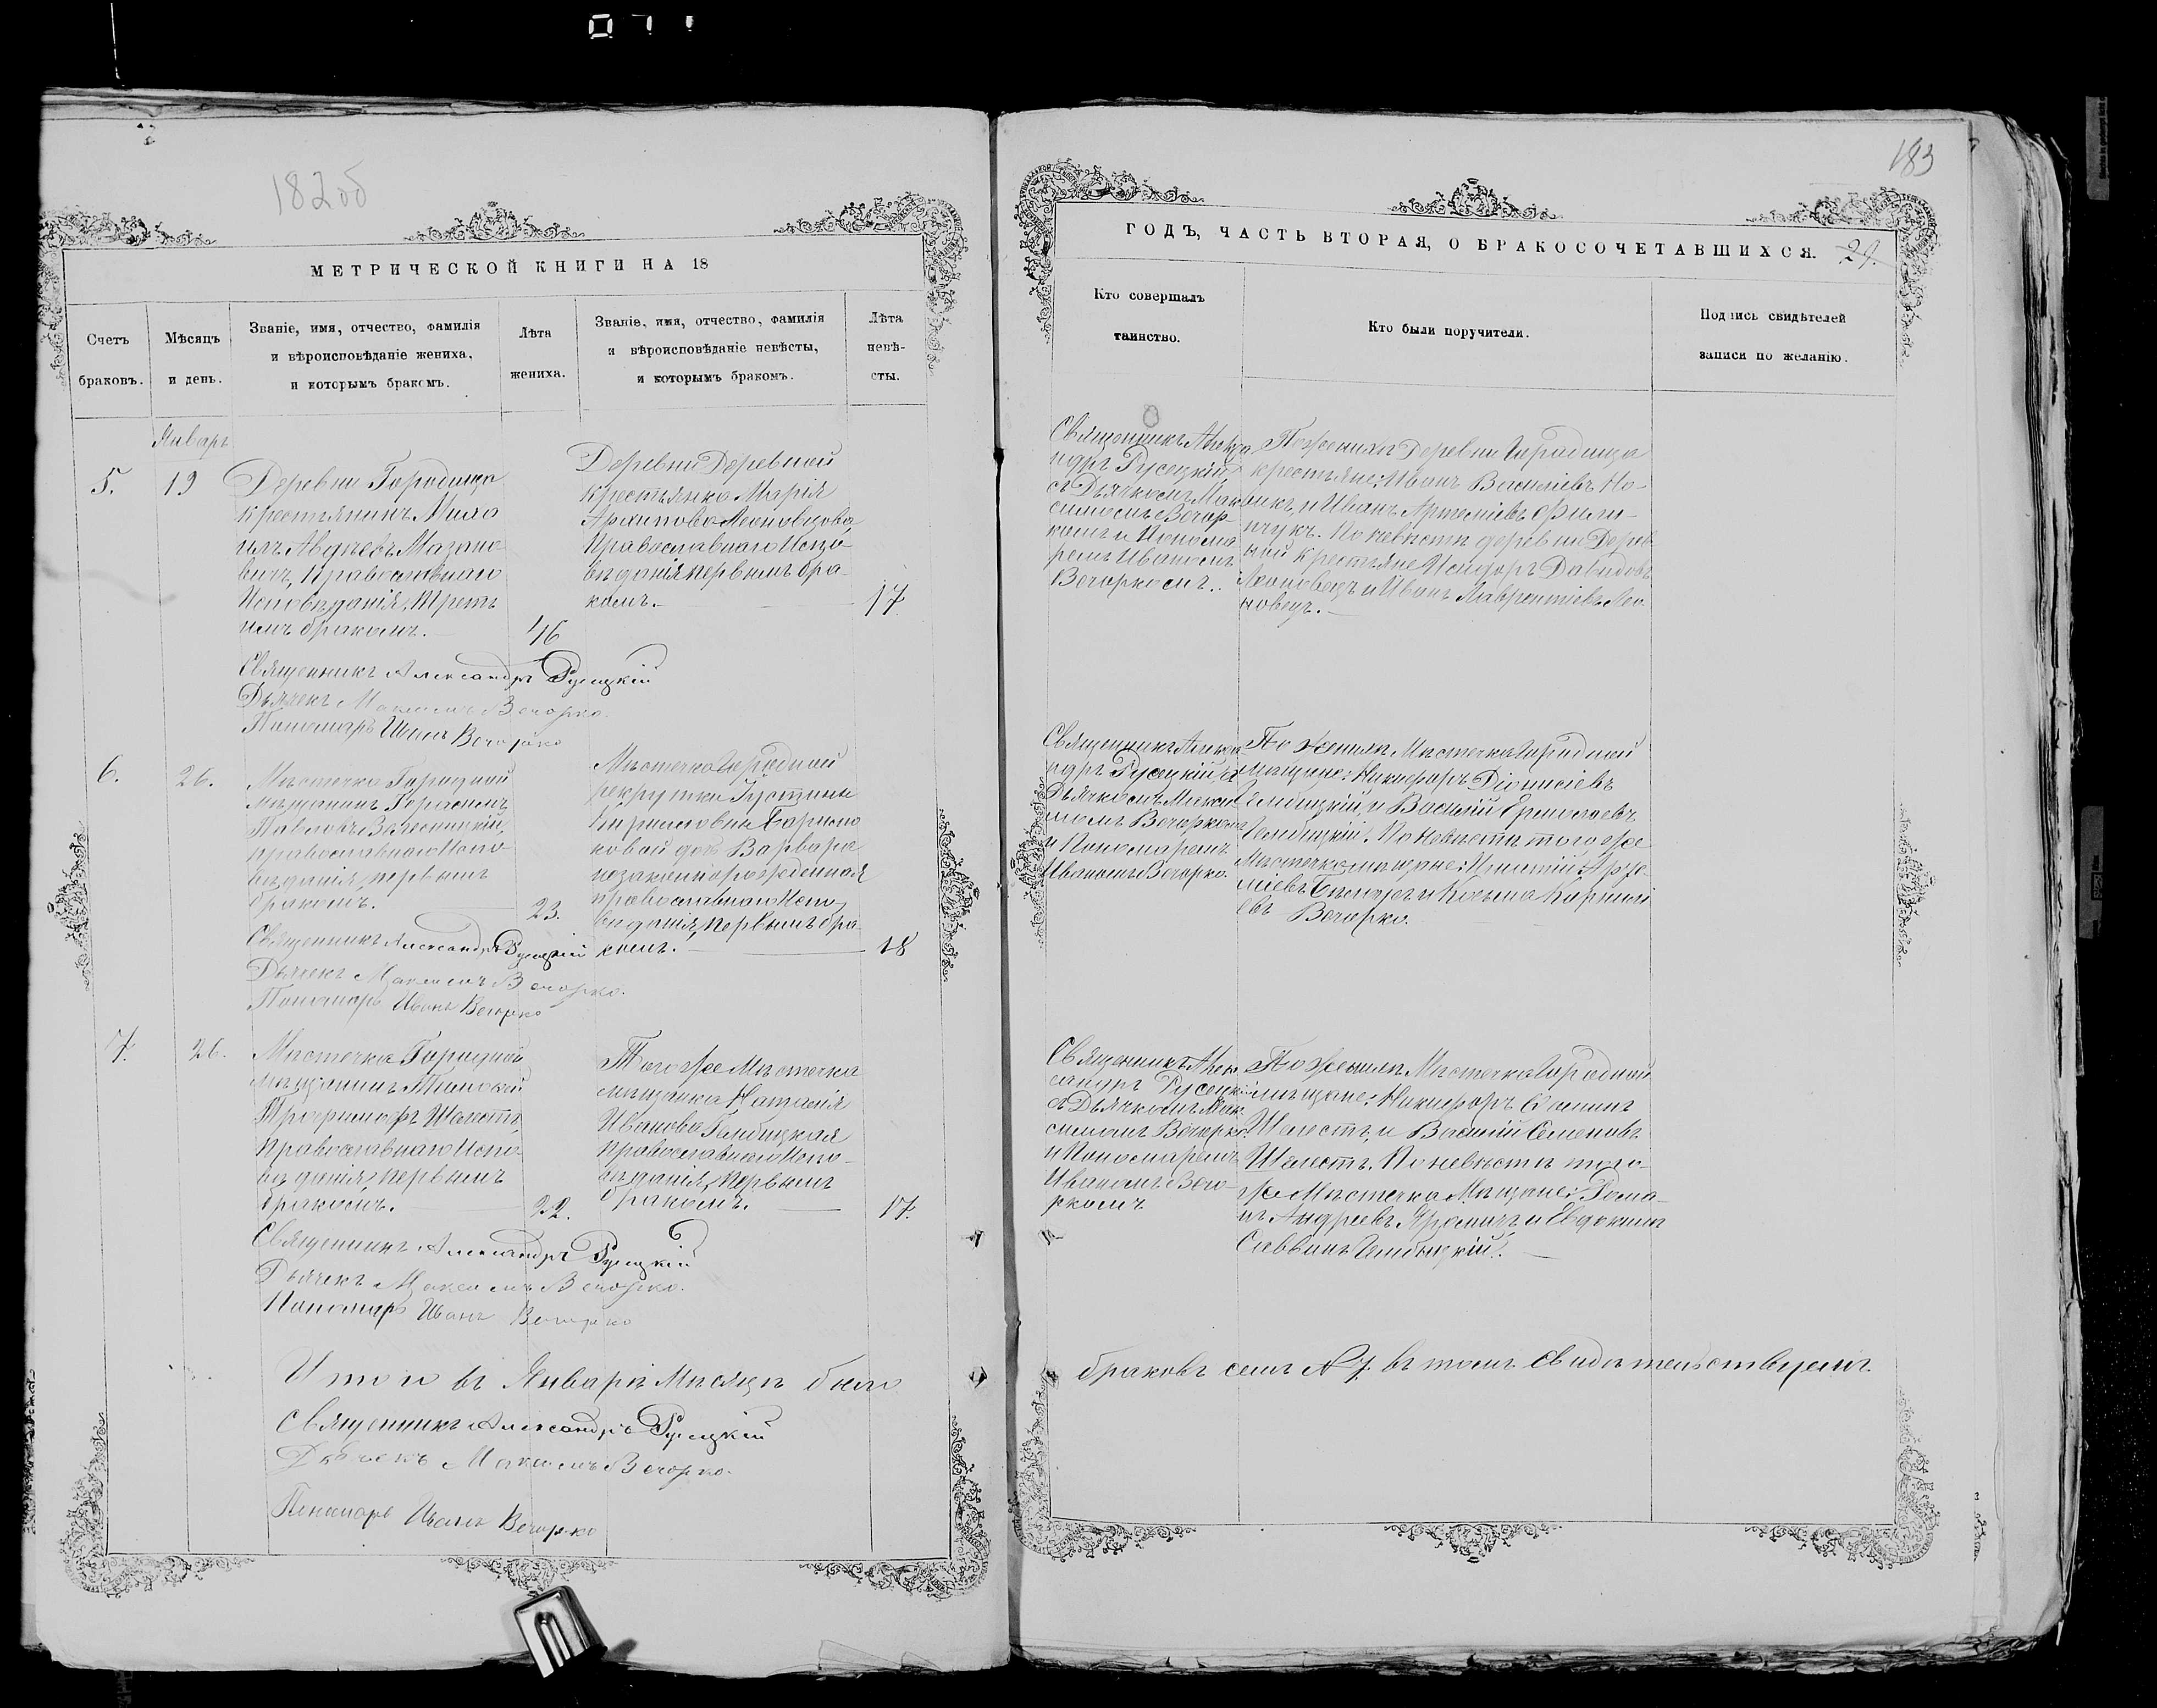 182об
МЕТРИЧЕСКОЙ КНИГИ НА 18
Счетъ браковъ.
Мѣсяцъ и день.
Званіе, имя, отчество, фамилія
и вѣроисповѣданіе жениха,
и которымъ бракомъ.
Лѣта жениха.
Званіе, имя, отчество, фамилія
и вѣроисповѣданіе невѣсты,
и которымъ бракомъ.
Лѣта невѣ-
сты.
Январь
5.
19
Деревни Городища
крестьянинъ Миха
илъ Авдѣевъ Мазано
вичъ, православнаго
Исповѣданія, Треть
имъ бракомъ.
46
Деревни Деревной
крестьянка Марія
Архипова Леоновцова
Православнаго Испо
вѣданія первымъ бра
комъ.
17.
Священникъ Александръ Русецкій
Дьячекъ Максимъ Вечорко.
Пономарь Иванъ Вечорко
6.
26.
Мѣстечка Городной
мѣщанинъ Герасимъ
Павловъ
православнаго Испо
вѣданія, первымъ
бракомъ.
23.
Мѣстечка Городной
рекрутки Густины
дочь Варвара
незаконнорожденная
православнаго Испо
вѣданія, первымъ бра
комъ.
18
Священникъ Александръ Русецкій
Дьячекъ Максимъ Вечорко.
Пономарь Иванъ Вечорко
7.
26.
Мѣстечка Городной
мѣщанинъ Тимофей
Трофимовъ Шелестъ
православнаго Испо
вѣданія, первымъ
бракомъ.
22.
Того же Мѣстечка
мѣщанка Наталія
Иванова Гембицкая
православнаго Испо-
вѣданія, первымъ
бракомъ.
17.
Священникъ Александръ Русецкій
Дьячекъ Максимъ Вечорко.
Пономарь Иванъ Вечорко
Итого въ Январѣ Мѣсяцѣ было
Священникъ Александръ Русецкій
Дьячекъ Максимъ Вечорко.
Пономарь Иванъ Вечорко
183
ГОДЪ, ЧАСТЬ ВТОРАЯ, О БРАКОСОЧЕТАВШИХСЯ.
29.
Кто совершалъ
таинство.
Кто были поручители.
Подпись свидѣтелей
записи по желанію.
Священникъ Алекса
ндръ Русецкій
съ Дьячкомъ Мак
симомъ Вечор-
комъ и Понома
ремъ Иваномъ
Вечоркомъ.
По женихѣ Деревни Городища
крестьяне: Иванъ Василіевъ
и Иванъ Артеміевъ Фили-
пчукъ. По невѣстѣ деревни Дерев
ной крестьяне Исидоръ Давидовъ
Леоновецъ и Иванъ Лаврентіевъ Лео
новецъ.
Священникъ Алекса
ндръ Русецкій съ
Дьячкомъ Макси
момъ Вечоркомъ
и Пономаремъ
Иваномъ Вечорко.
По женихѣ Мѣстечка Городной
мѣщане: Никифоръ Діонисіевъ
Гембицкій, и Василій Ермолаевъ
Гембицкій. По невѣстѣ того же
Мѣстечка мѣщане: Игнатій
и Козьма
Вечорко.
Священникъ Алек
сандръ Русецкій
съ Дьячкомъ Мак
симомъ Вечорко
и Пономаремъ
Иваномъ Вечо-
ркомъ
По женихѣ Мѣстечка Городной
мѣщане: Никифоръ Ѳоминъ
Шелестъ, и Василій Семеновъ
Шелестъ. По невѣстѣ того-
же Мѣстечка Мѣщане: Рома-
нъ Андреевъ Яромичъ и Евдокимъ
Саввинъ Гембицкій.
браковъ семь № 7. въ томъ свидѣтельствуемъ